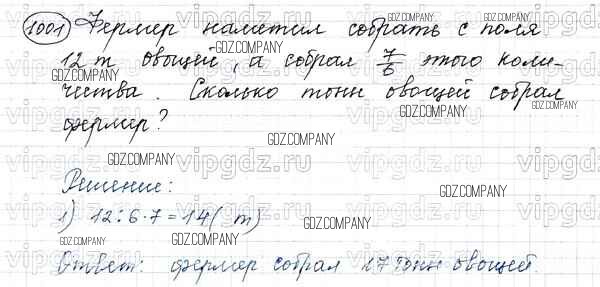 1001 Фермер наметил собрать с поля
12 т овощей, а собрал 7/6 этого коли-
чества. Сколько тонн овощей собрал
фермер?
Решение:
1) 12:6·7=14( т)
Ответ: фермер собрал 17 тонн овощей.